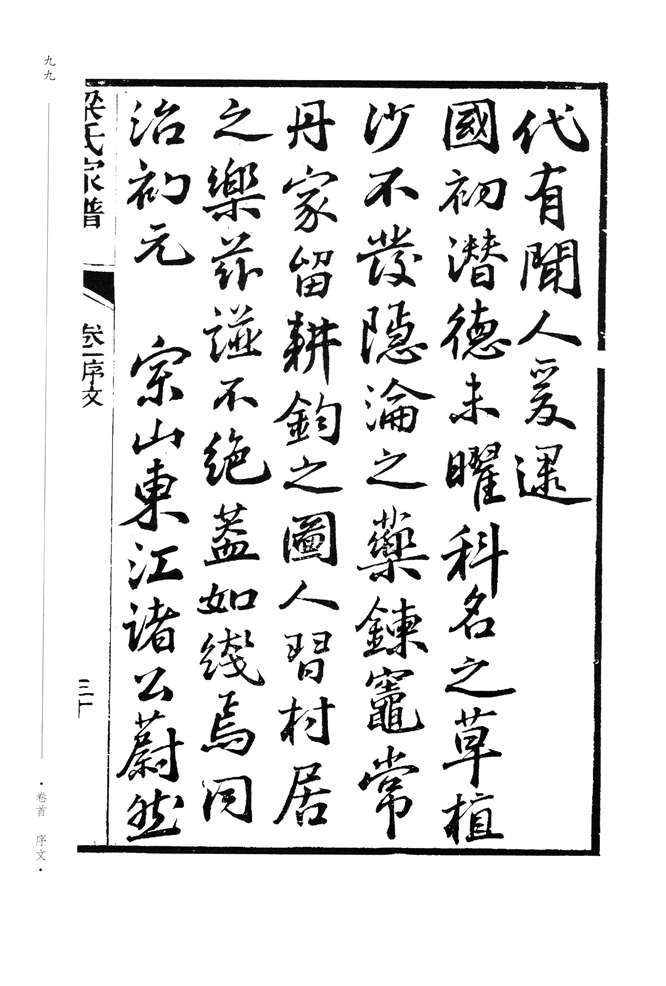 代有聞人爰逮
國初潛德未曜科名之草植
沙不發隱淪之藥鍊竈常
丹家留耕釣之圖人習村居
之樂茲誼不絕蓋如綫焉同
治初元　宗山東江諸公蔚然
梁氏家譜
卷一序文
三十
九九
·卷首　序文·